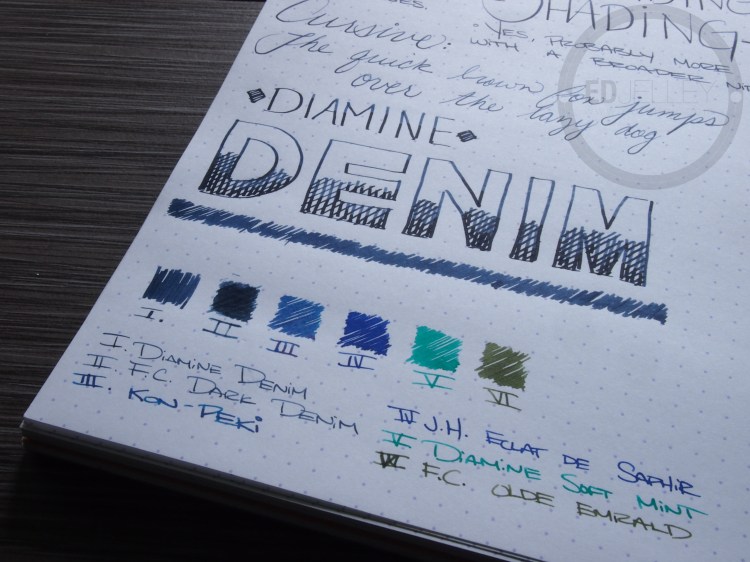 SHADING-
Cursive: YES, PROBABLY MORE
WITH A BROADER NIB
The quick brown fox jumps
over the lazy dog
ED JELLEY
DIAMINE
DENIM
I.
II
III
IV
V
VI
I DIAMINE DENIM
II. F.C. DARK DENIM
III. KON-PEKI
IV J.H. ECLAT DE SAPHIR
V DIAMINE SOFT MINT
VI F.C. OLDE EMRALD